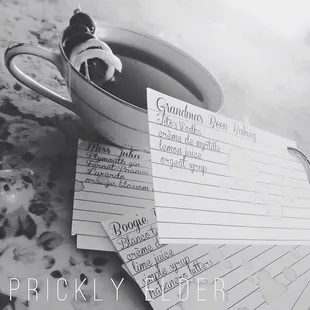 Grandma's Boon Baking
Titos Vodka
crème de myrtille
lemon juice
orgeat syrup
Miss Julia
Plymouth gin
Fernet Branca
Luxardo
orange blossom
Boogie
crème d
lime juice
simple syrup
bitters
PRICKLY ELDER